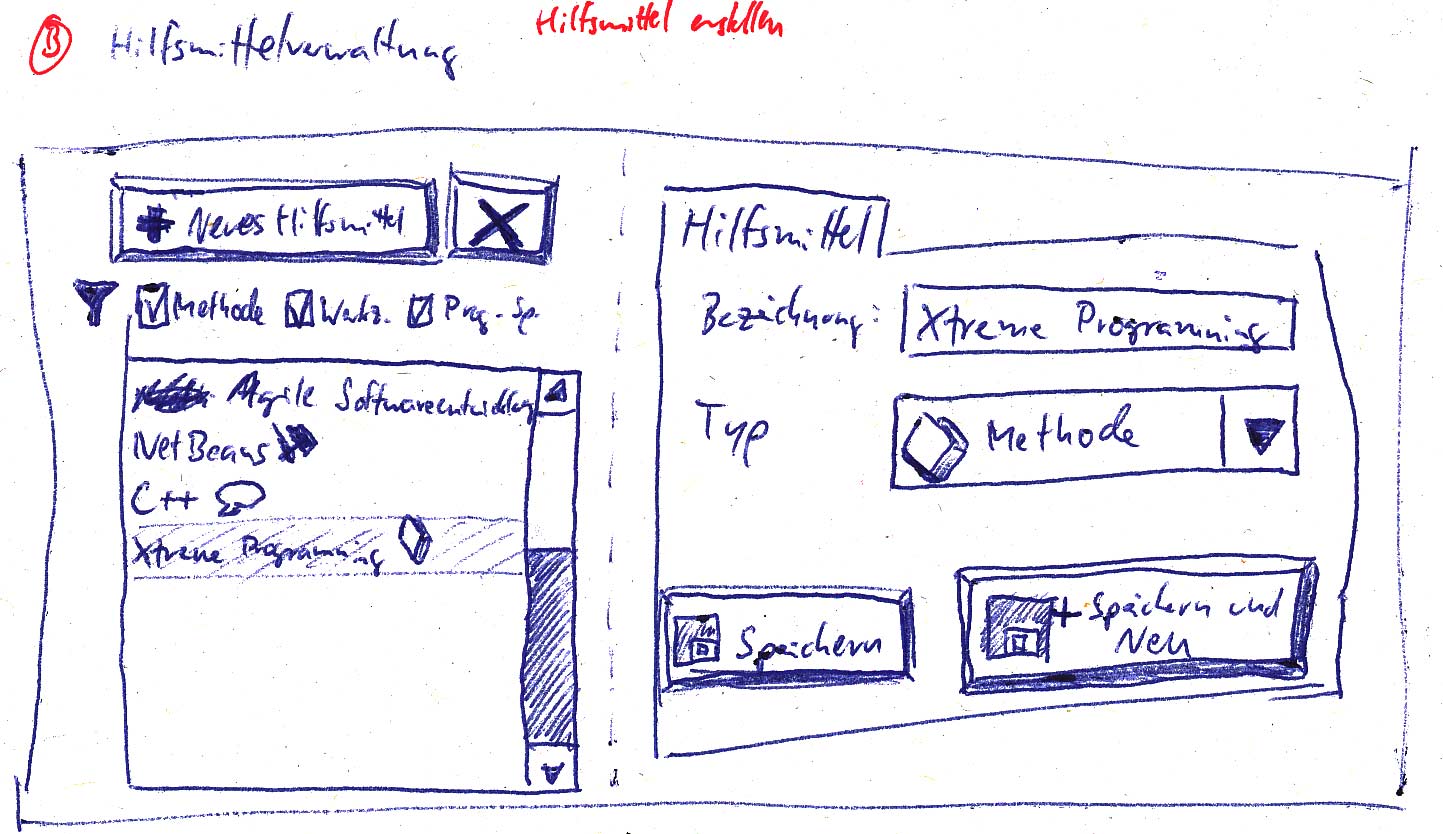 B Hilfsmittelverwaltung
Hilfsmittel erstellen
+ Neues Hilfsmittel X
Methode Werkz. Prog.-Sp.
Agile Softwareentwicklung
NetBeans
C++
Xtreme Programming
Hilfsmittel
Bezeichnung: Xtreme Programming
Typ Methode
Speichern
+ Speichern und
Neu